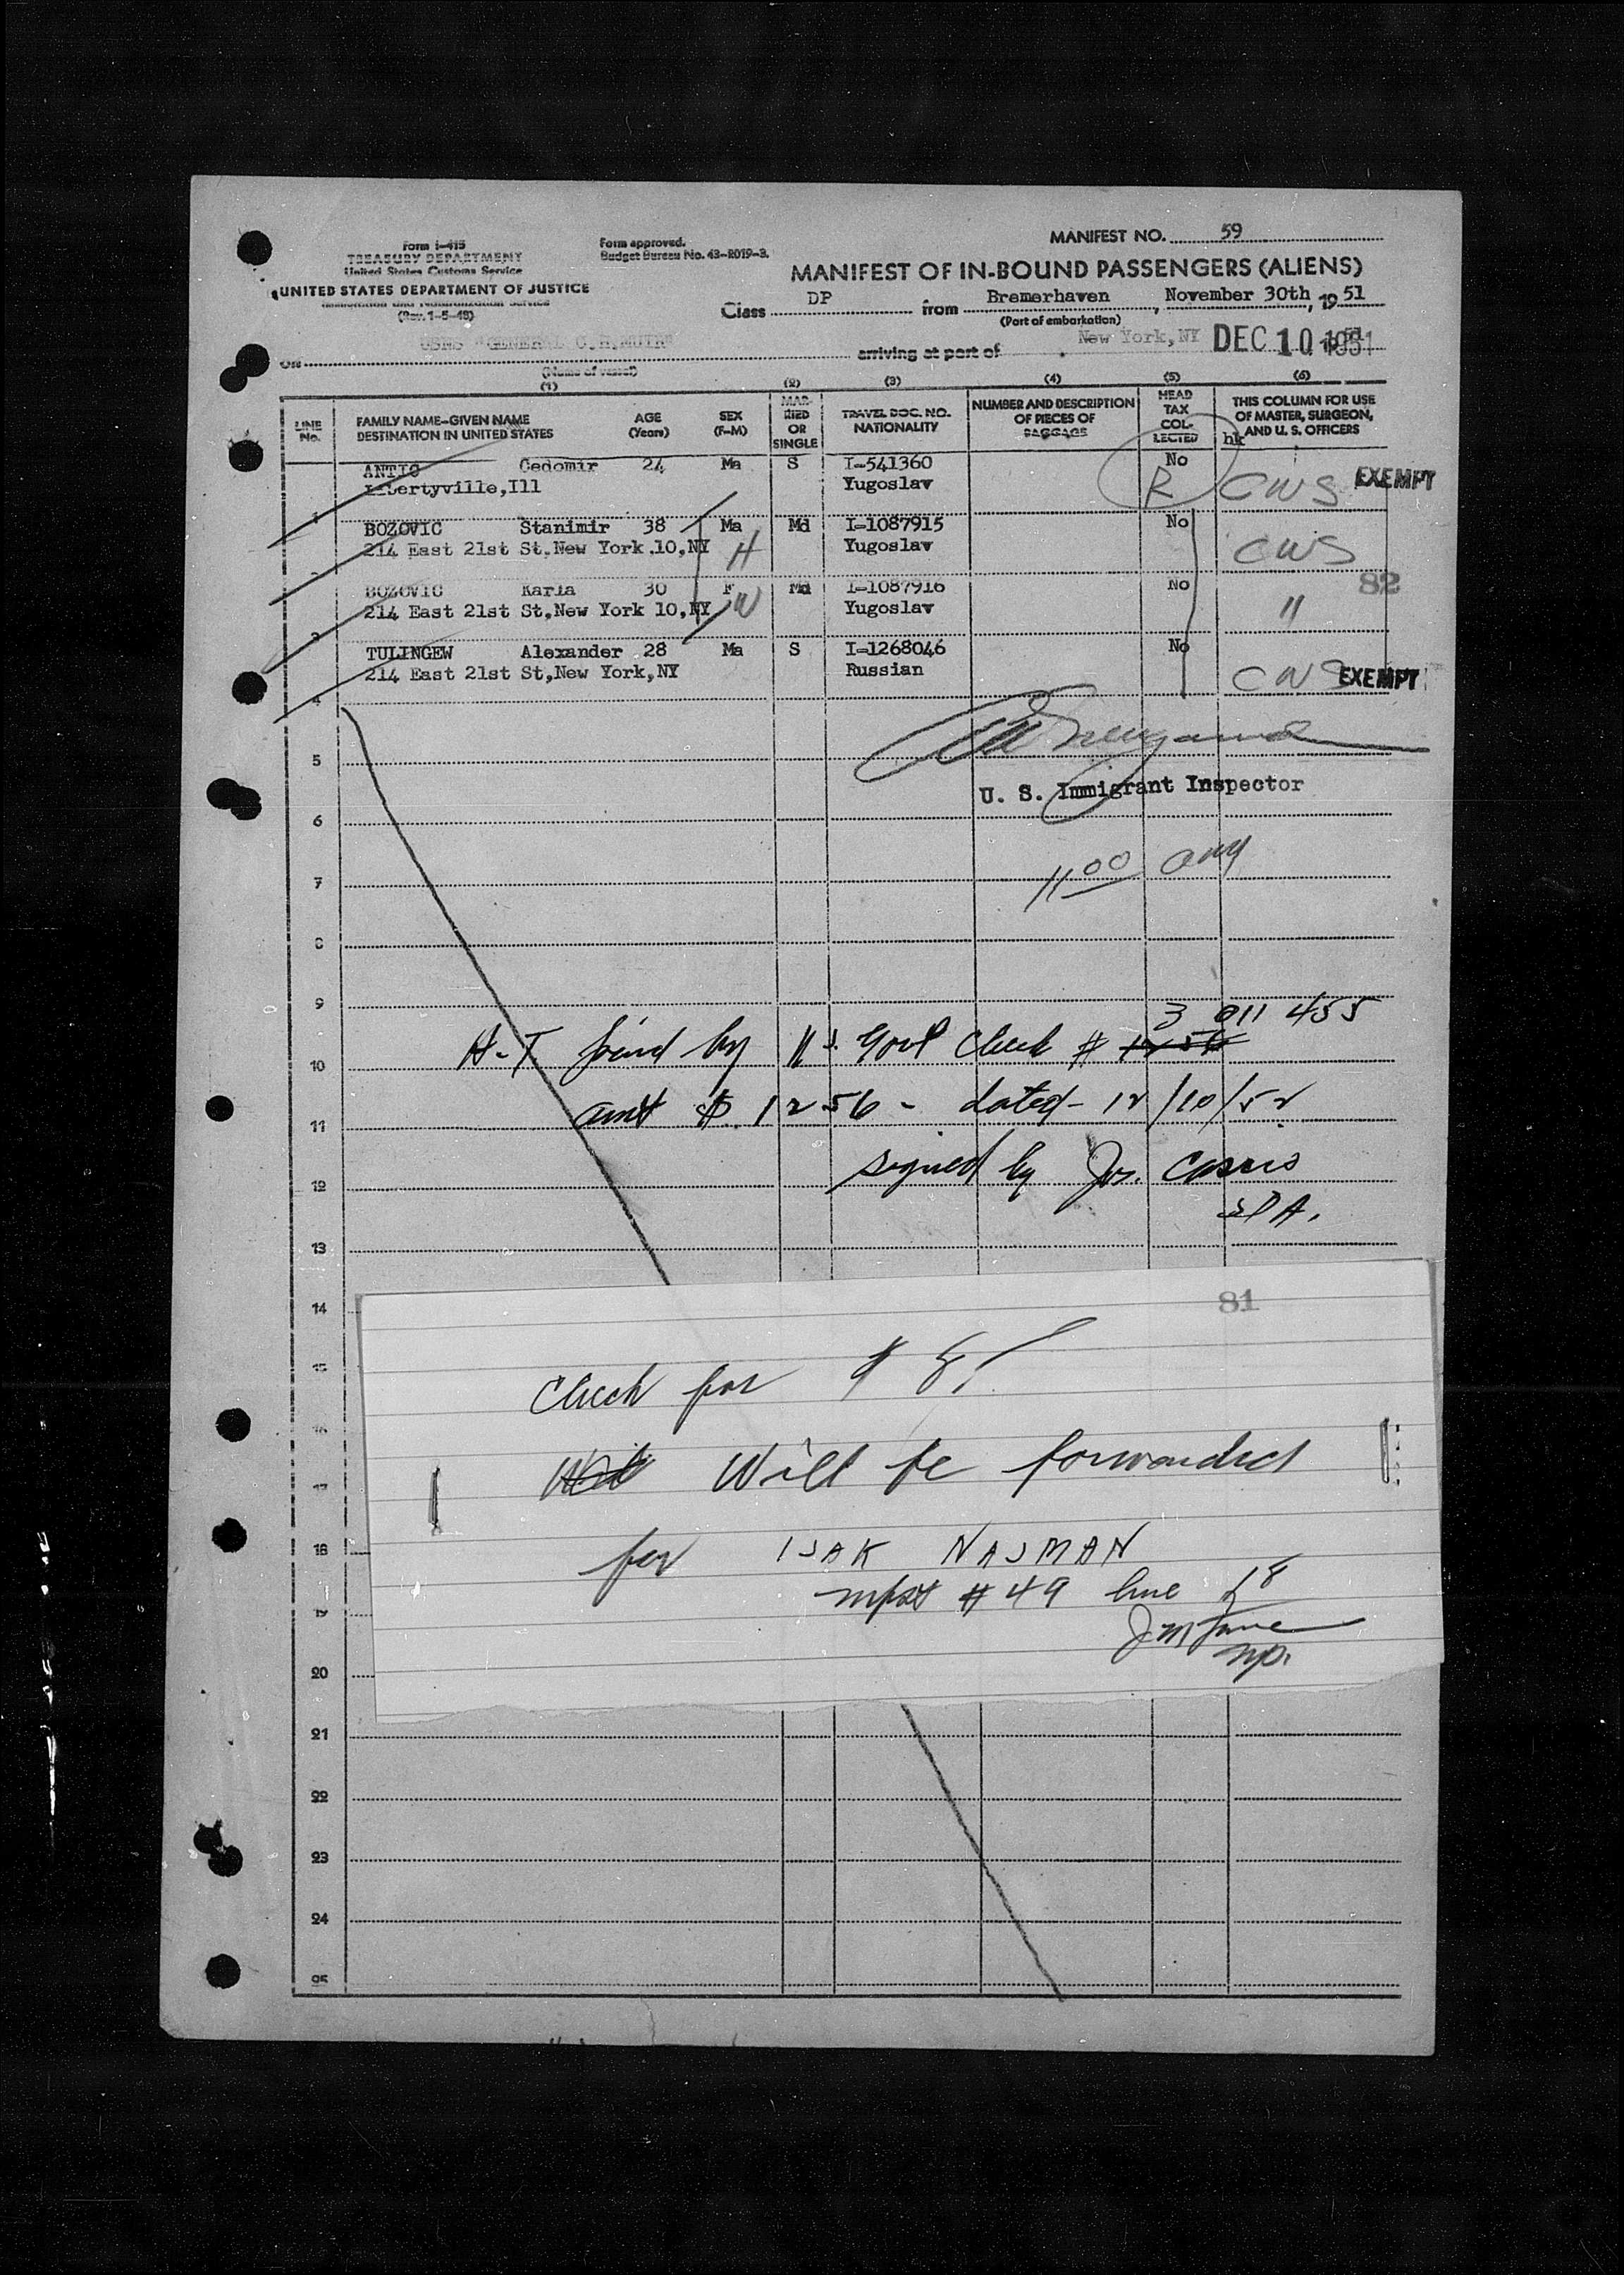 MANIFEST NO. 59
Form I-415
TREASURY DEPARTMENT
United States Customs Service
UNITED STATES DEPARTMENT OF JUSTICE
Immigration and Naturalization Service
(Rev. 1-5-48)
Form approved.
Budget Bureau No. 43-R019-3.
MANIFEST OF IN-BOUND PASSENGERS (ALIENS)
Class DP from Bremerhaven, November 30th, 1951
(Port of embarkation)
on USNS "GENERAL C.H.MUIR" arriving at port of New York,NY DEC 10 1951
(Name of vessel)
(1) (2) (3) (4) (5) (6)
LINE No. FAMILY NAME-GIVEN NAME DESTINATION IN UNITED STATES AGE (Years) SEX (F-M) MARRIED OR SINGLE TRAVEL DOC. NO. NATIONALITY NUMBER AND DESCRIPTION OF PIECES OF BAGGAGE HEAD TAX COLLECTED THIS COLUMN FOR USE OF MASTER, SURGEON, AND U. S. OFFICERS
hk
ANTIC Cedomir 24 Ma S I-541360 No
1 Libertyville,Ill Yugoslav R CWS EXEMPT
BOZOVIC Stanimir 38 Ma Md I-1087915 No
2 214 East 21st St.New York.10,NY H Yugoslav CWS
BOZOVIC Karia 30 F Md I-1087916 No 82
3 214 East 21st St,New York 10,NY W Yugoslav "
TULINGEW Alexander 28 Ma S I-1268046 No
4 214 East 21st St,New York,NY Russian CWS EXEMPT
5
U. S. Immigrant Inspector
6
7 11 00
8
9
3 011 455
10 H-T by U.S. Govt Check # 1256
11 amt $ 1256 - dated - 12/10/52
12 signed by Jos.
13
14 81
15 Check for $ 8
16
17 Will be forwarded
18 for ISAK NAJMAN
19 mfst # 49 line 18
20
21
22
23
24
25